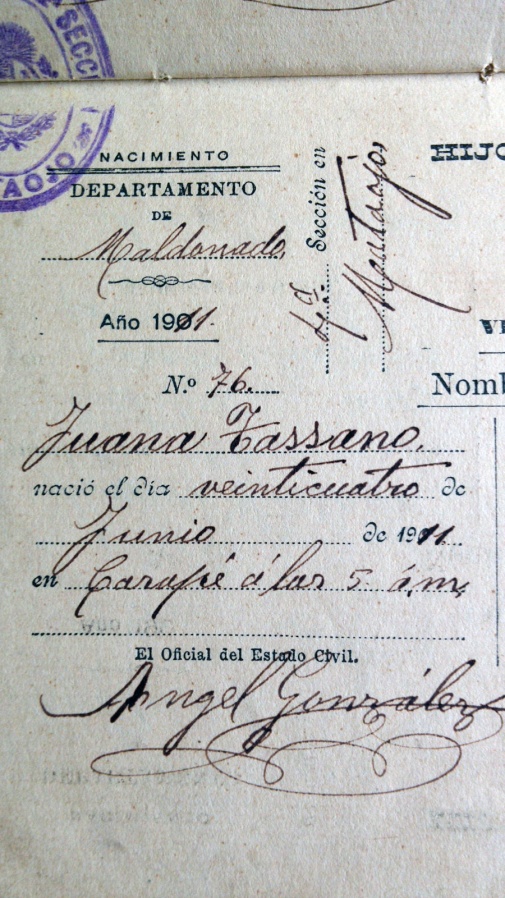 SECCI
NACIMIENTO
DEPARTAMENTO
DE
Maldonado
Año 1911.
Sección en
4ª
HIJO
N.º 76.
Nomb
Juana Tassano.
nació el día veinticuatro de
Junio de 1911
en Carapé á las 5 á.m.
El Oficial del Estado Civil.
Angel González